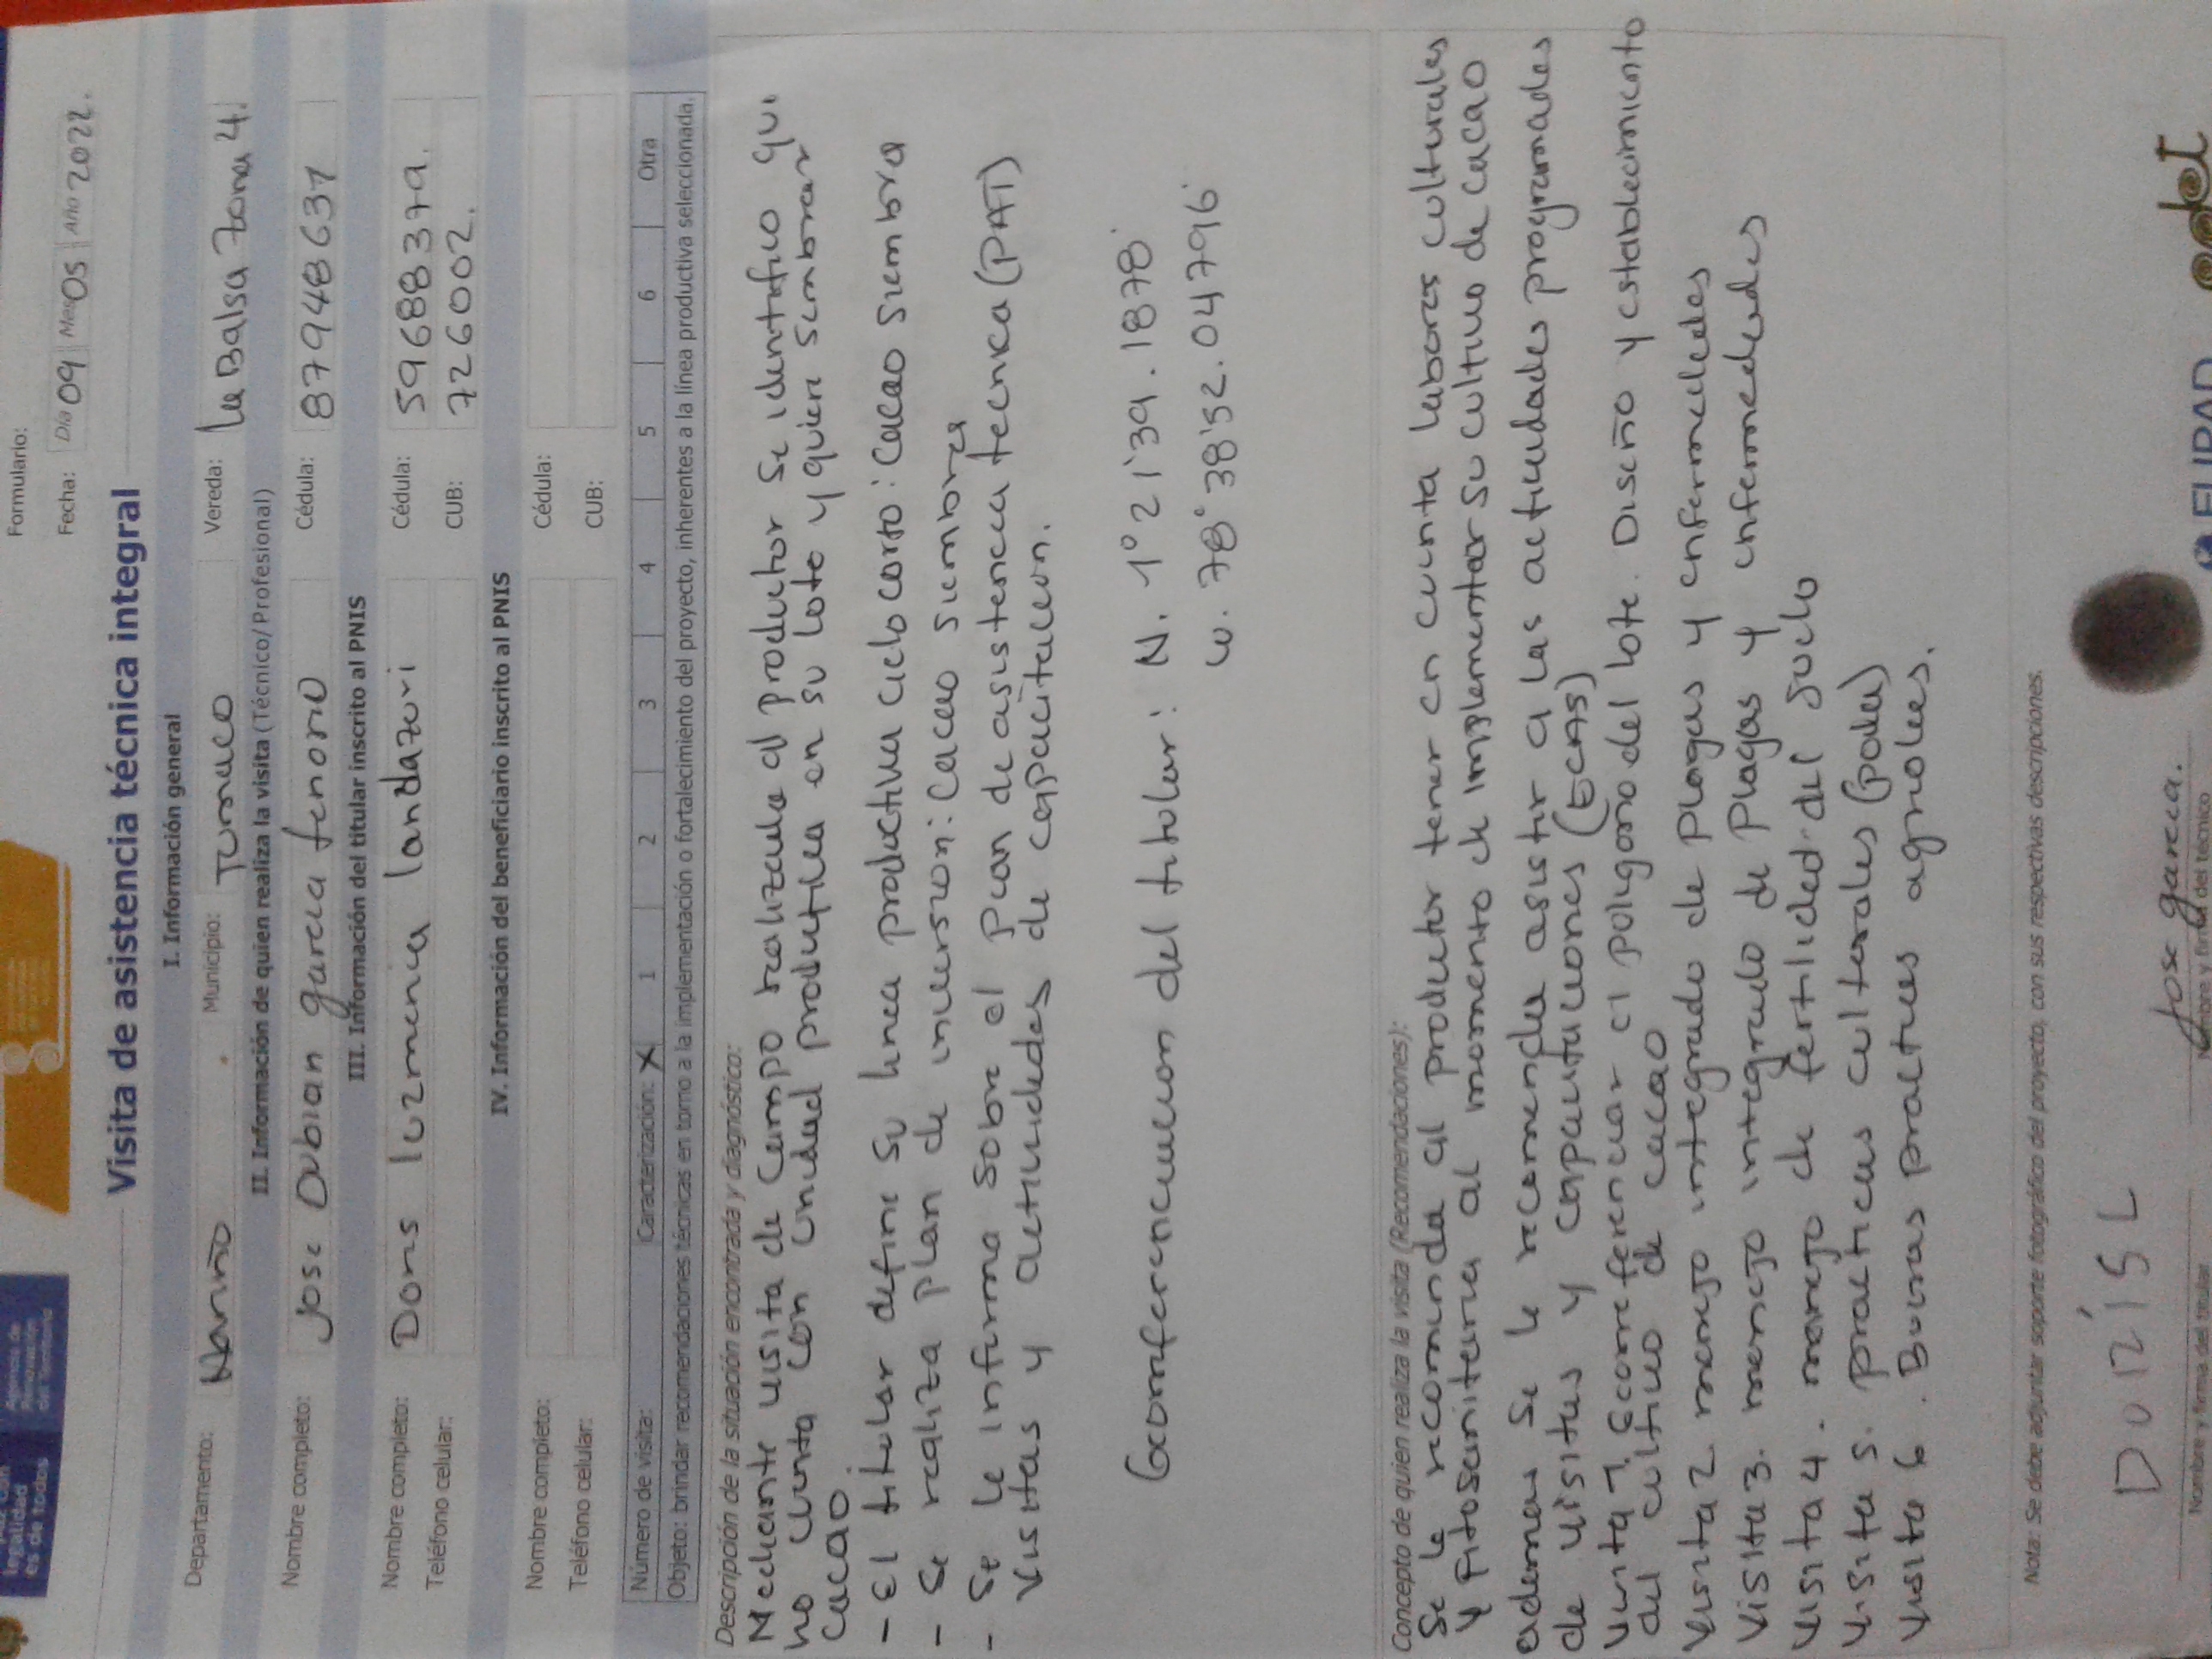 legalidad
es de todos
Agencia de
Renovación
del Territorio
Formulario:
Fecha: Día 09 Mes 05 Año 2022.
Visita de asistencia técnica integral
I. Información general
Departamento: Nariño Municipio: Tumaco Vereda: La Balsa Zona 4.
II. Información de quien realiza la visita (Técnico/ Profesional)
Nombre completo: Jose Dubian garcia tenorio Cédula: 87948631
III. Información del titular inscrito al PNIS
Nombre completo: Doris luzmenia landazuri Cédula: 59688379.
Teléfono celular: CUB: 726002.
IV. Información del beneficiario inscrito al PNIS
Nombre completo: Cédula:
Teléfono celular: CUB:
Número de visita: Caracterización: X 1 2 3 4 5 6 Otra
Objeto: brindar recomendaciones técnicas en torno a la implementación o fortalecimiento del proyecto, inherentes a la línea productiva seleccionada.
Descripción de la situación encontrada y diagnóstico:
Mediante visita de campo realizada al productor se identifico que
no cuenta con unidad produtiva en su lote y quiere sembrar
cacao
- El titular define su linea productiva ciclo corto: cacao siembra
- Se realiza plan de inversion: cacao siembra
- Se le informa sobre el plan de asistencia tecnica (PAT)
visitas y actividades de capacitacion.
Georreferenciacion del titular: N. 1° 21'39.1878
W. 78° 38'52.04796
Concepto de quien realiza la visita (Recomendaciones):
Se le recomienda al productor tener en cuenta labores culturales
y fitosanitaria al momento de implementar su cultivo de cacao
ademas se le recomienda asistir a las actividades programadas
de visitas y capacitaciones (ECAS)
visita 1, Georreferenciar el poligono del lote. Diseño y establecimiento
del cultivo de cacao
visita 2 manejo integrado de plagas y enfermedades
visita 3. manejo integrado de plagas y enfermedades
visita 4. manejo de fertilidad del suelo
visita 5. practicas culturales (poda)
visita 6. Buenas practices agricolas.
Nota: Se debe adjuntar soporte fotográfico del proyecto, con sus respectivas descripciones.
DORÍSL
Jose garcia.
Nombre y firma del titular
Nombre y firma del técnico